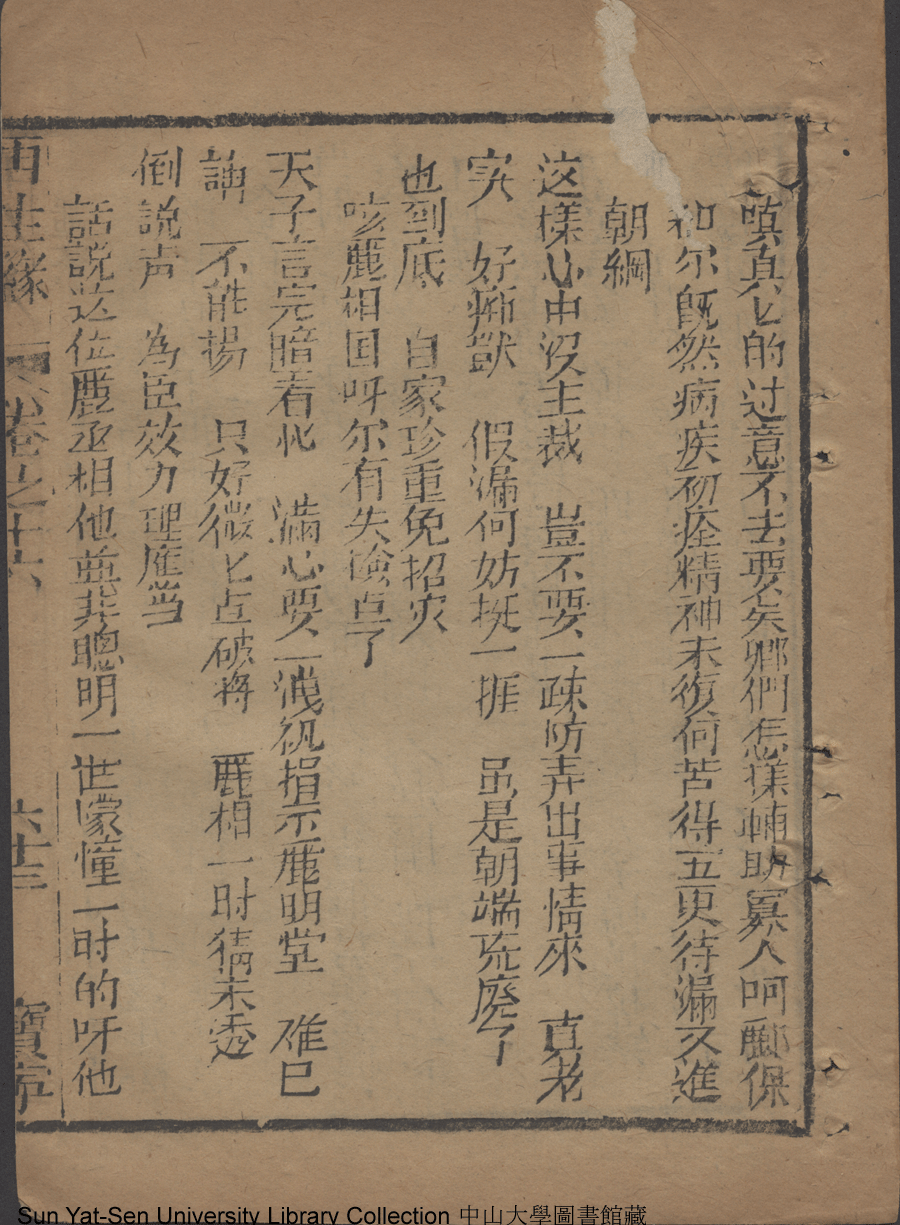 嗔真匕的过意不去要矣卿們怎樣輔助寡人呵酈保
和尔既然病疾初痊精神未復何苦得五更待漏又進
朝綱
这樣心中没主裁　豈不要一疎防弄出事情來　真老
实　好痴獃　假漏何妨挺一捱　虽是朝端荒廢了
也到底　自家珍重免招灾
咳麗相国呀尔有失儉点了
天子言完暗着忙　滿心要一洩机指示麗明堂　碓巳
講　不能揚　只好微匕点破將　麗相一时猜未透
倒説声　為臣效力理應当
話説这位麗丞相他並非聰明一世懞憧一时的呀他
再生緣　卷之十六　六十三　寳寧
Sun Yat-Sen University Library Collection 中山大學圖書館藏